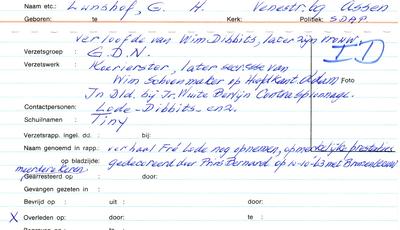 Naam etc.: Lunshof, G. H. Venestr. 69 Assen
Geboren: te Kerk: Politiek: S.D.A.P.
verloofde van Wim Dibbits, later zijn vrouw.
Verzetsgroep : G.D.N. ID
Verzetswerk : Koerierster, later secresse van
Wim Schoenmaker op Hoofdkant. Adam Foto
In Dld. bij Jr. Wuite Berlijn Contraspionnage.
Contactpersonen: Lode-Dibbits-enz.
Schuilnaam : Tiny
Verzetsrapp. ingel. dd. : bij:
Naam genoemd in rapp.: verhaal Fré Lede nog opnemen, opmerkelijke prestaties
op bladzijde: gedecoreerd door Prins Bernard op 10-10-'63 met Bronzenleeuw
meerdere keren
Gearresteerd op : door:
Gevangen gezeten in :
Bevrijd op : uit : door:
X Overleden op: door: te :